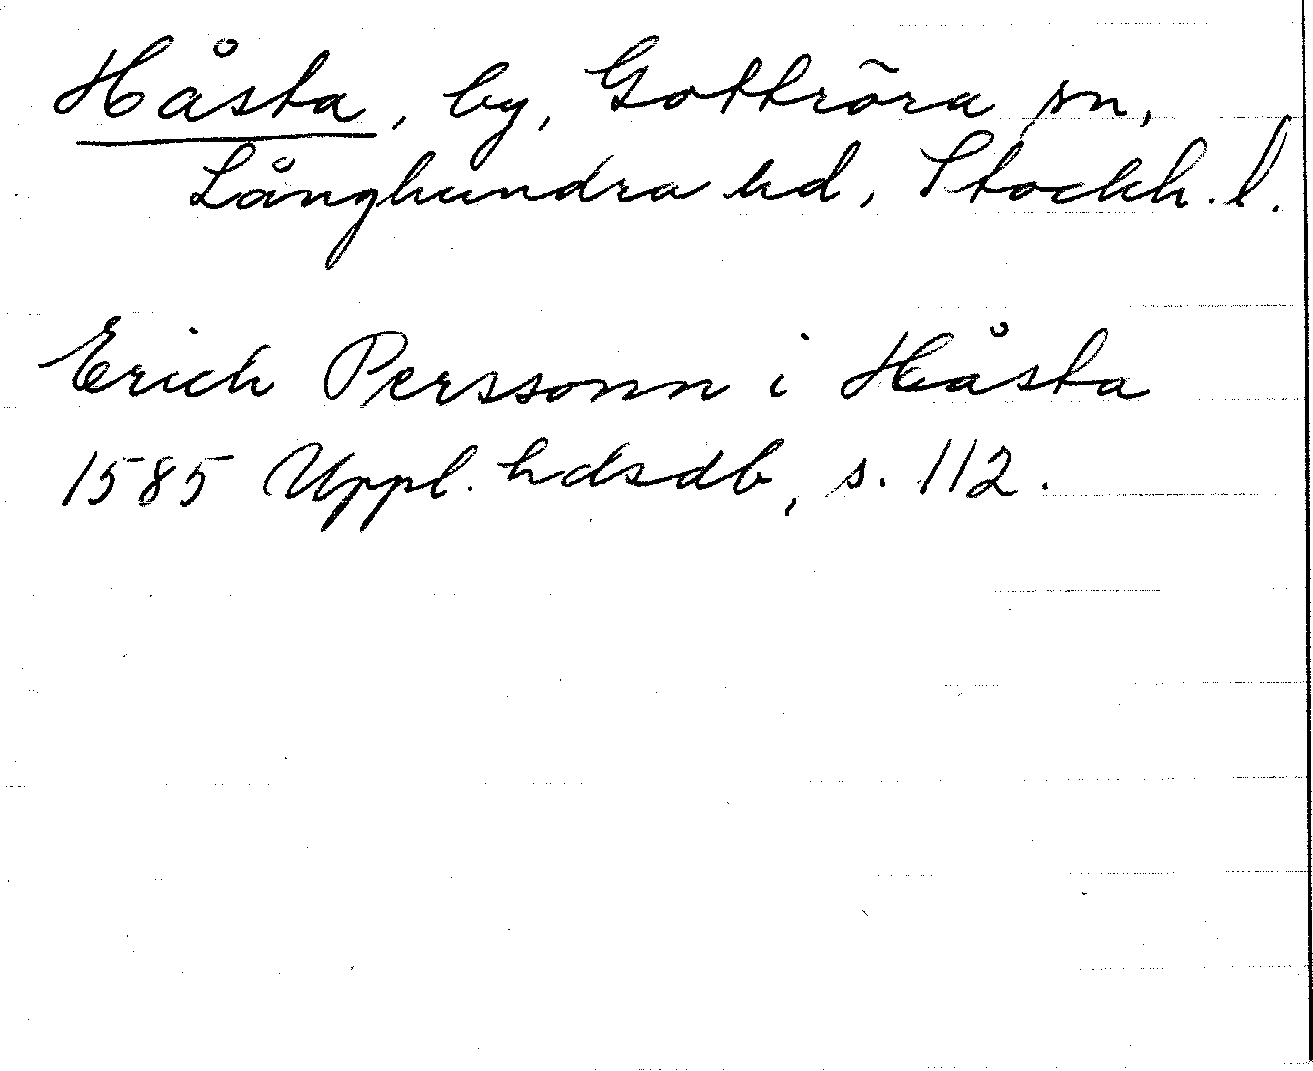 Håsta, by, Gottröra sn,
Långhundra hd, Stockh. l.
Erich Perssonn i Håsta
1585 Uppl. hdsdb, s. 112.